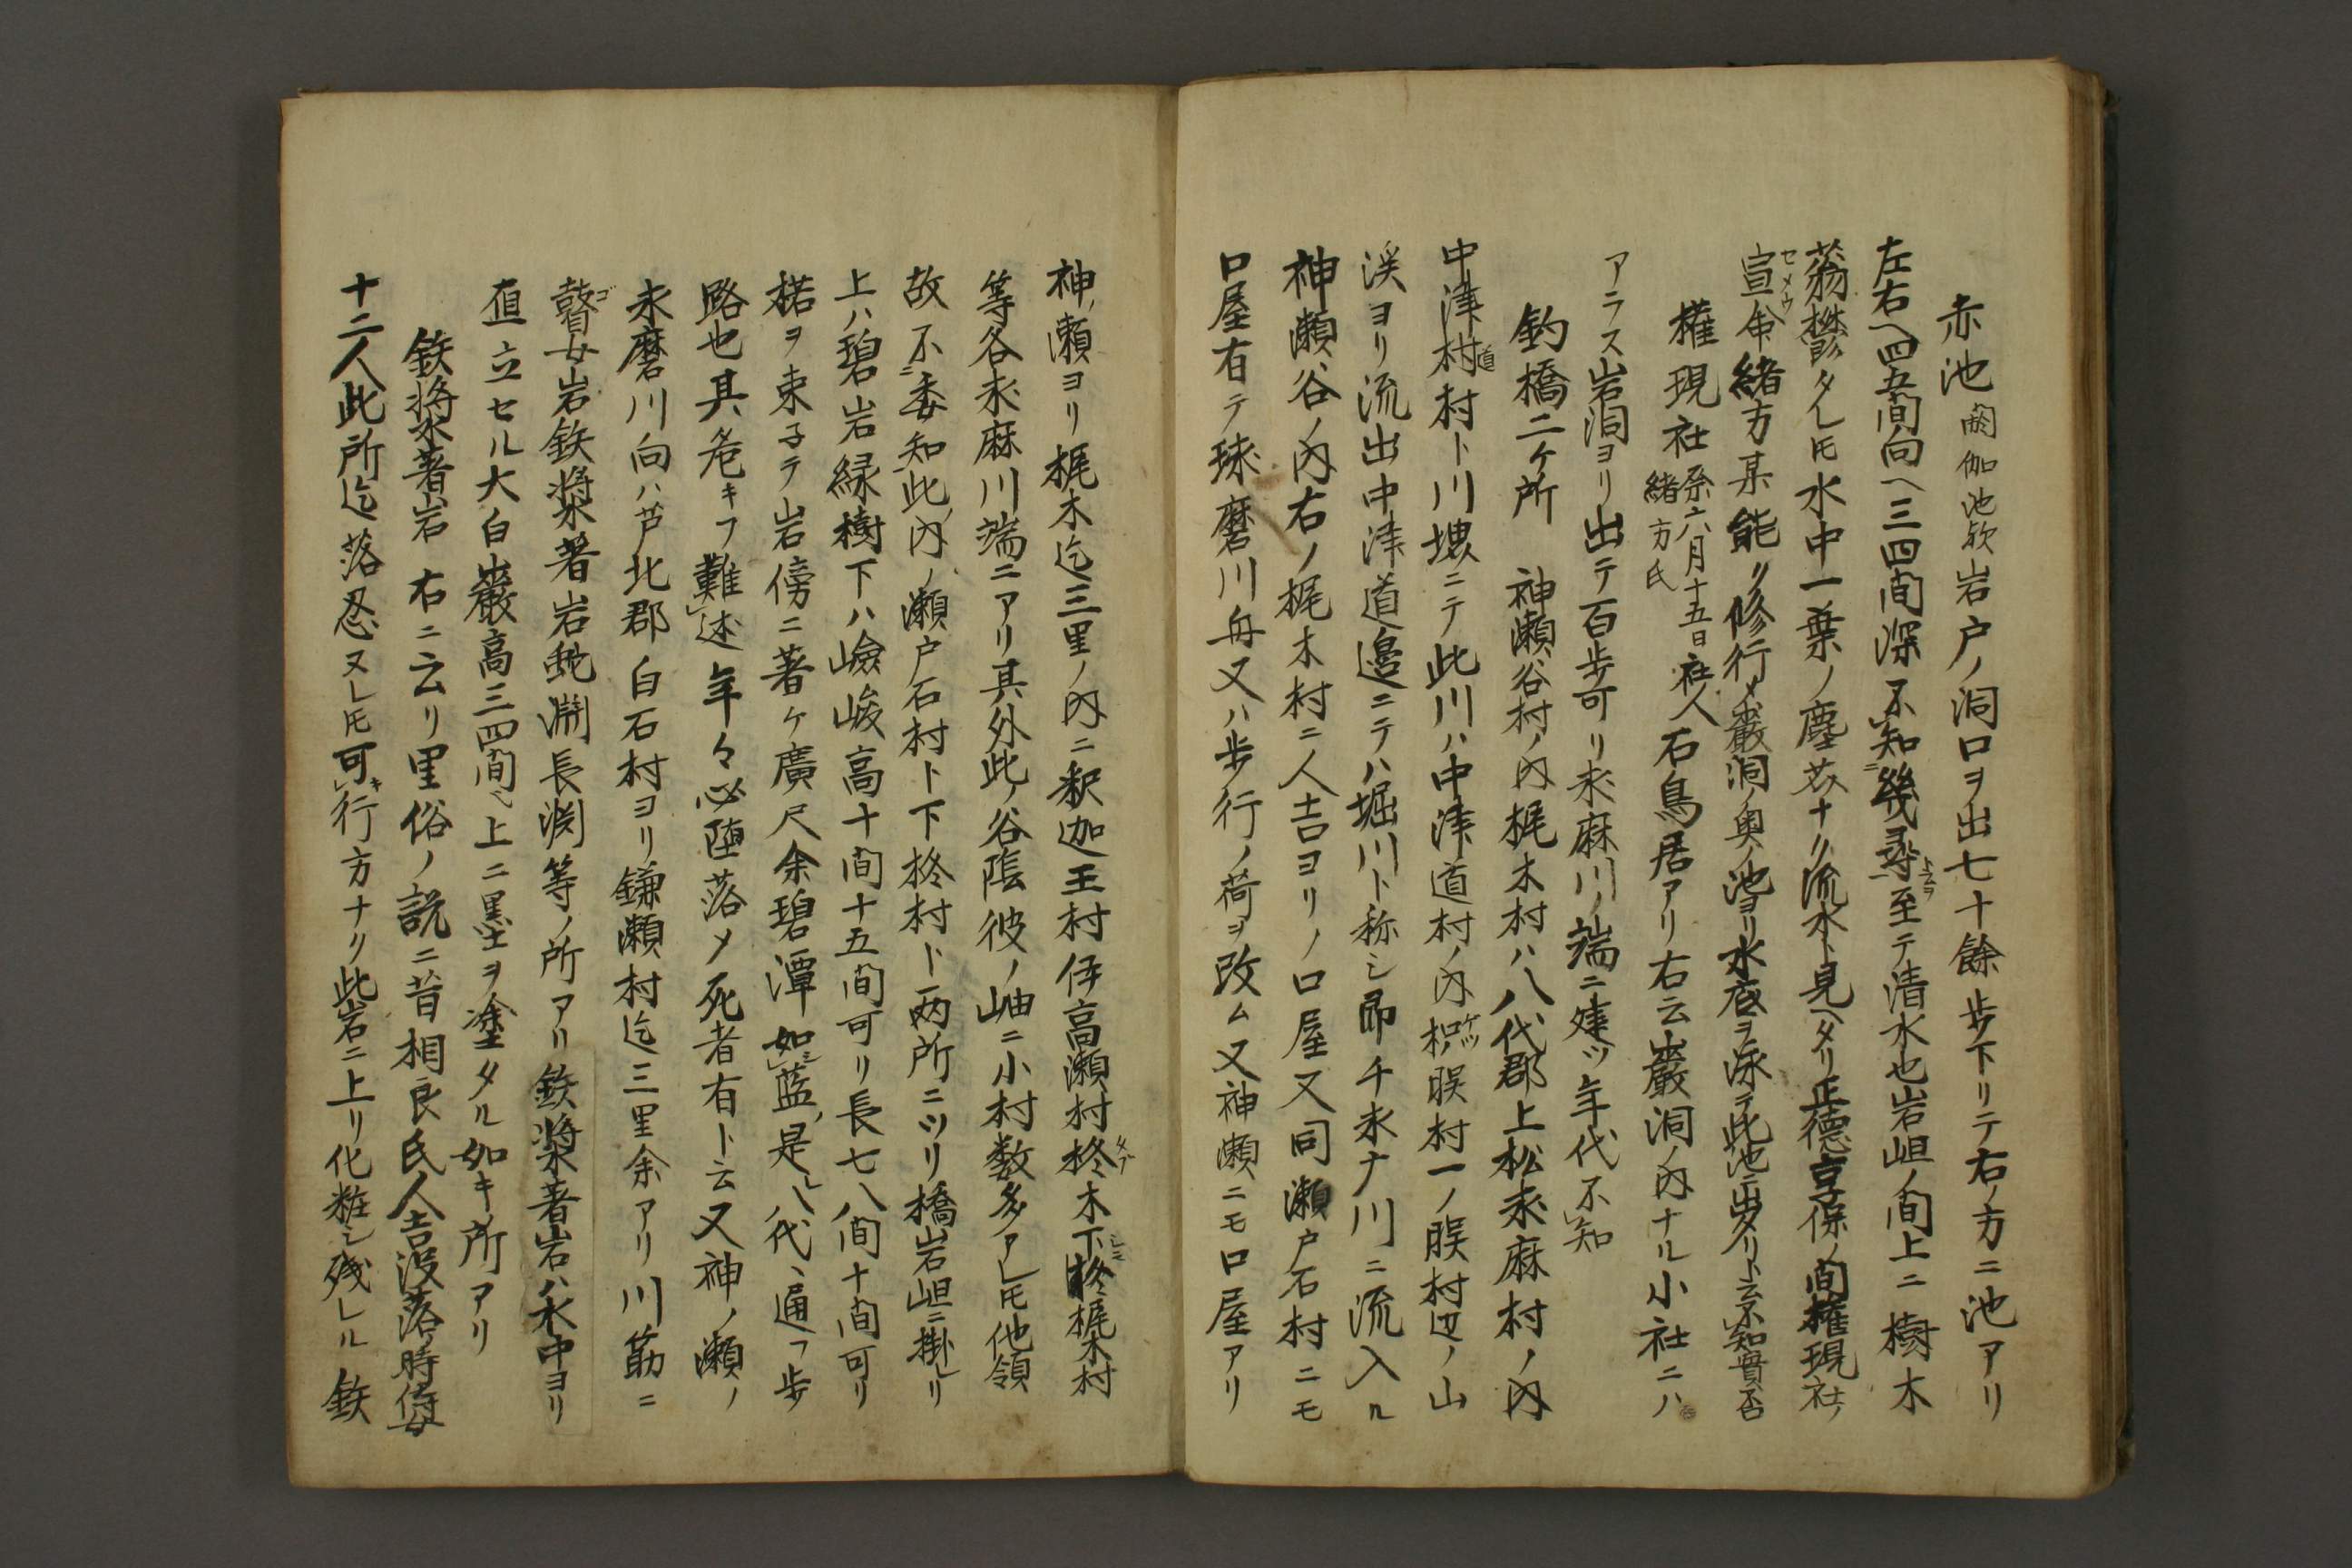 赤池閼伽池欤岩戸ノ洞口ヲ出七十餘歩下リテ右ノ方ニ池アリ
左右ヘ四五間向ヘ三四間深不知幾尋至テ清水也岩岨ノ間上ニ樹木
蓊欝タレ𪜈水中一葉ノ塵芥ナク流水ト見ヘタリ正徳享保ノ間権現社ノ
宣命緒方某能ク修行〆巌洞ノ奥ノ池ヨリ水底ヲ泳テ此池ニ出タリト云不知實否
権現社祭六月十五日社人緒方氏石鳥居アリ右云巌洞ノ内ナル小社ニハ
アラス岩洞ヨリ出テ百歩可リ求麻川ノ端ニ建ツ年代不知
釣橋二ケ所 神瀬谷村ノ内梶木村ハ八代郡上松求麻村ノ内
中津道村ト川堺ニテ此川ハ中津道村ノ内枳䐅村一ノ䐅村辺ノ山
渓ヨリ流出中津道邉ニテハ堀川ト称シ即チ求ナ川ニ流入ル
神瀬谷ノ内右ノ梶木村ニ人吉ヨリノ口屋又同瀬戸石村ニモ
口屋有テ球磨川舟又ハ歩行ノ荷ヲ改ム又神瀬ニモ口屋アリ
神ノ瀬ヨリ梶木迄三里ノ内ニ釈迦王村伊高瀬村柊木下柊梶木村
等各求麻川端ニアリ其外此ノ谷陰彼ノ岫ニ小村数多アレ𪜈他領
故不委知此ノ内ノ瀬戸石村ト下柊村ト両所ニツリ橋岩岨ニ掛レリ
上ハ碧岩緑樹下ハ嶮峻高十間十五間可リ長七八間十間可リ
楉ヲ束子テ岩傍ニ著ケ廣尺余碧潭如藍是ハ八代ヘ通フ歩
路也其危キフ難述年々必堕落〆死者有ト云又神ノ瀬ノ
求磨川向ハ芦北郡白石村ヨリ鎌瀬村迄三里余アリ川筋ニ
瞽女岩鉄漿著岩蛇渕長渕等ノ所アリ鉄漿著岩ハ水中ヨリ
直立セル大白巌高三四間ヘ上ニ墨ヲ塗タル如キ所アリ
鉄漿著岩右ニ云リ里俗ノ説ニ昔相良氏人吉没落ノ時侍女
十二人此所迄落忍ヌレ𪜈可行方ナク此岩ニ上リ化粧シ残レル鉄